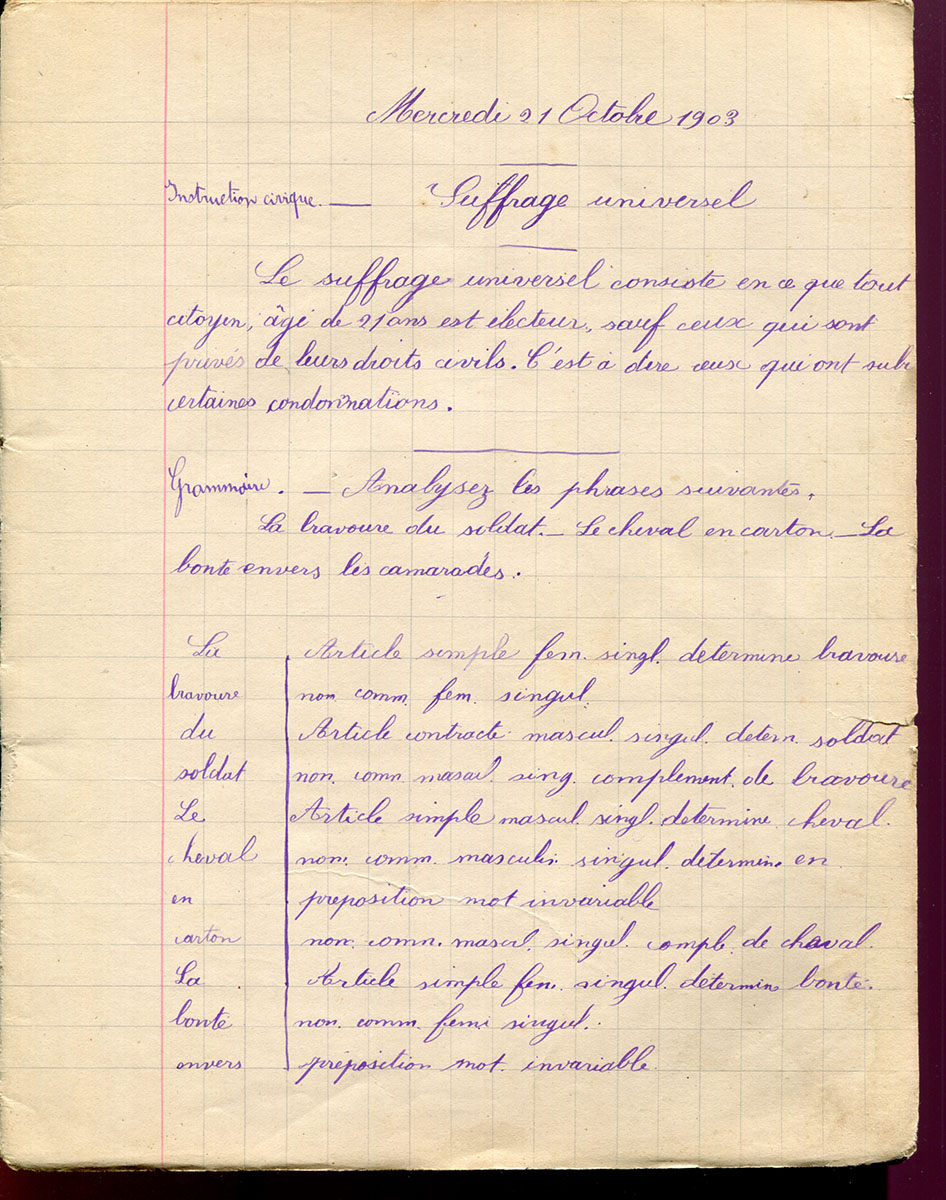 Mercredi 21 Octobre 1903
Instruction civique. — Suffrage universel
Le suffrage universel consiste en ce que tout
citoyen, âgé de 21 ans est électeur, sauf ceux qui sont
privés de leurs droits civils. C'est à dire ceux qui ont subi
certaines condonnations.
Grammaire. — Analysez les phrases suivantes.
La bravoure du soldat. — Le cheval en carton. — La
bonté envers les camarades.
La Article simple fem. singl. determine bravoure
bravoure non comm. fem. singul.
du Article contracte mascul. singul. déterm. soldat
soldat non. comn. mascul. sing. complement. de bravoure
Le Article simple mascul. singl. determine cheval.
cheval nom. comm. masculin singul. determine en
en preposition mot invariable
carton non. comn. mascul. singul. comple. de cheval.
La Article simple fem. singul. détermine bonté.
bonté non. comm. femi singul.
envers préposition mot. invariable